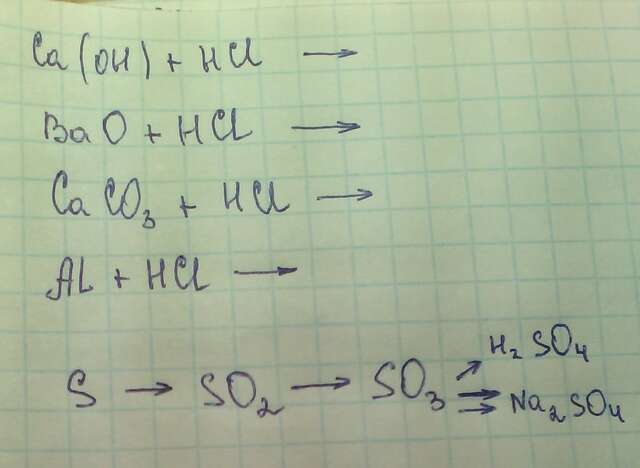 Ca(OH) + HCl →
BaO + HCl →
CaCO₃ + HCl →
Al + HCl →
H₂SO₄
S → SO₂ → SO₃ ↗ ⇉ Na₂SO₄